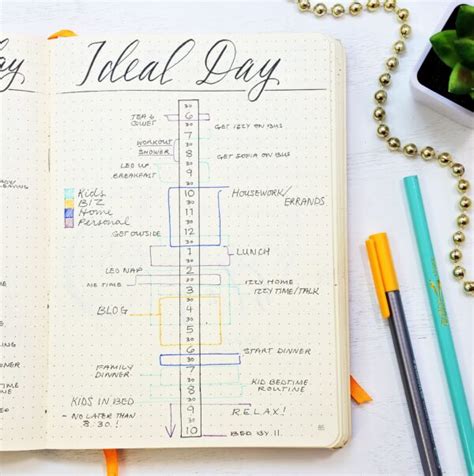 ay
Ideal Day
30
TEA &
QUIET
6
30
GET IZZY ON BUS
WORKOUT
7
30
SHOWER
8
GET SOFIA ON BUS
30
LEO UP
BREAKFAST
9
30
Kids
BIZ
Home
Personal
10
HOUSEWORK/
ERRANDS
30
11
30
12
GET OUTSIDE
30
1
LUNCH
30
LEO NAP
2
ME TIME
30
IZZY HOME
3
IZZY TIME/TALK
30
BLOG
4
30
5
30
6
START DINNER
30
FAMILY
DINNER
7
30
KID BEDTIME
ROUTINE
8
30
KIDS IN BED
9
RELAX!
- NO LATER THAN
8:30!
30
10
BED BY 11